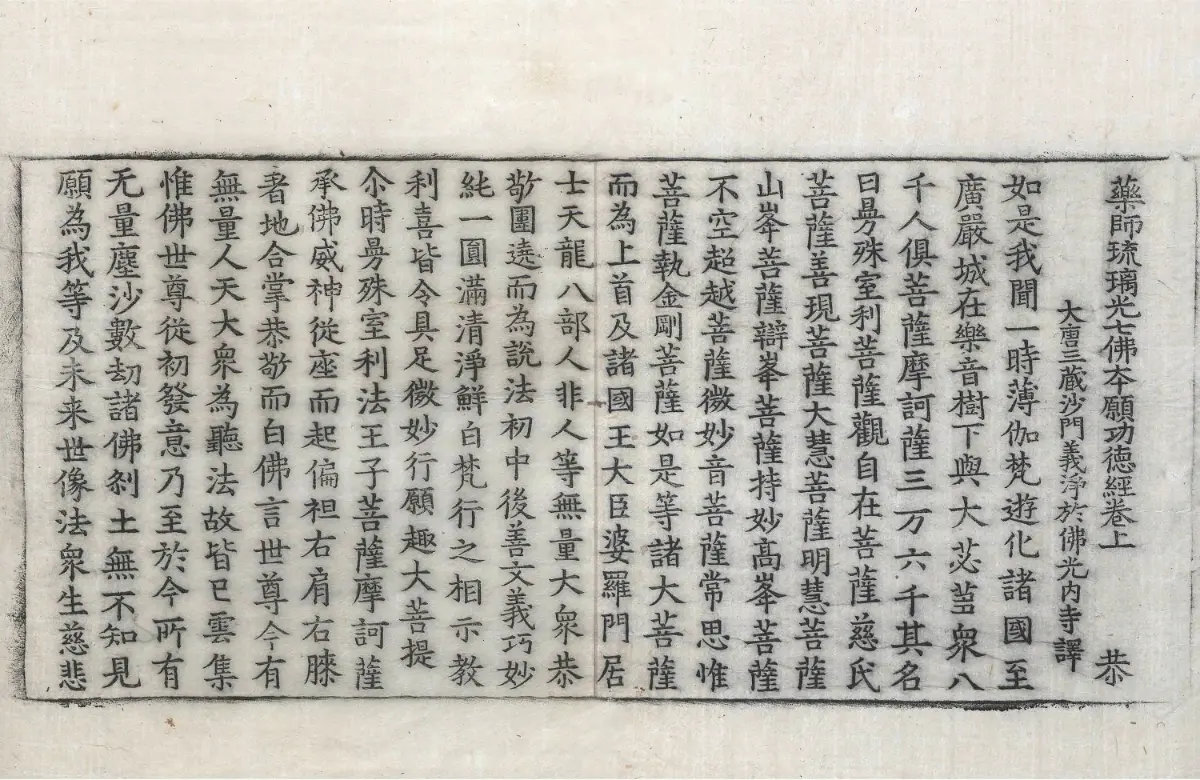 藥師琉璃光七佛本願功德經卷上 恭
大唐三藏沙門義淨於佛光內寺譯
如是我聞一時薄伽梵遊化諸國至
廣嚴城在樂音樹下與大苾芻衆八
千人俱菩薩摩訶薩三万六千其名
曰曼殊室利菩薩觀自在菩薩慈氏
菩薩善現菩薩大慧菩薩明慧菩薩
山峯菩薩辯峯菩薩持妙高峯菩薩
不空超越菩薩微妙音菩薩常思惟
菩薩執金剛菩薩如是等諸大菩薩
而為上首及諸國王大臣婆羅門居
士天龍八部人非人等無量大衆恭
敬圍遶而為說法初中後善文義巧妙
純一圓滿清淨鮮白梵行之相示教
利喜皆令具足微妙行願趣大菩提
尒時曼殊室利法王子菩薩摩訶薩
承佛威神從座而起偏袒右肩右膝
著地合掌恭敬而白佛言世尊今有
無量人天大衆為聽法故皆已雲集
惟佛世尊從初發意乃至於今所有
无量塵沙數劫諸佛刹土無不知見
願為我等及未来世像法衆生慈悲